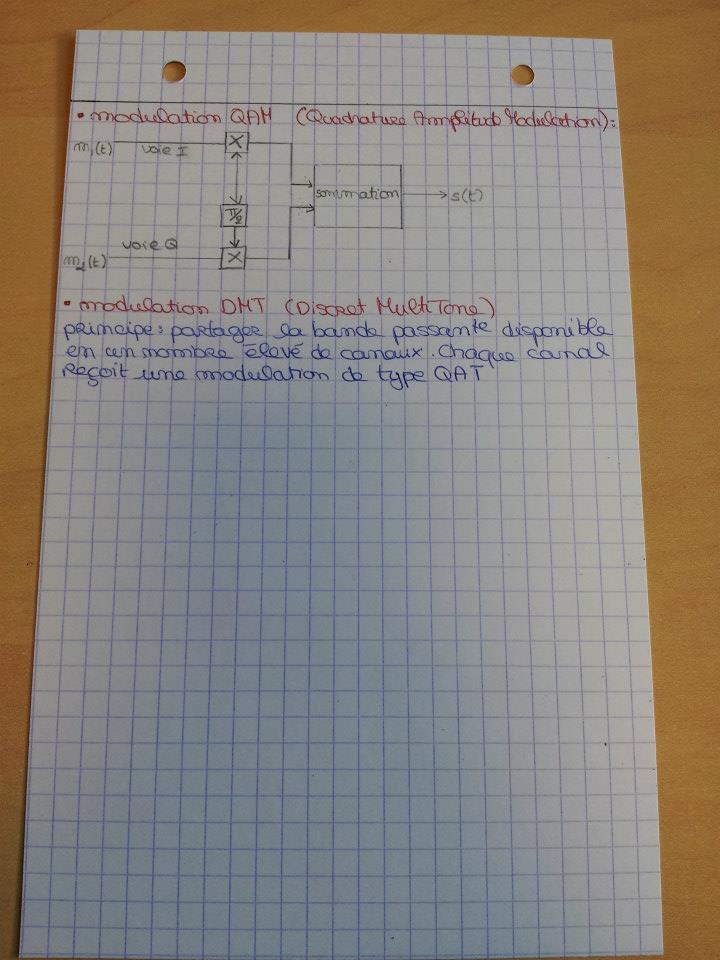 • modulation QAM (Quadrature Amplitude Modulation):
m₁(t) voie I X
sommation s(t)
π/2
voie Q
m₂(t) X
• modulation DMT (Discret MultiTone)
principe: partager la bande passante disponible
en un nombre élevé de canaux. Chaque canal
reçoit une modulation de type QAT